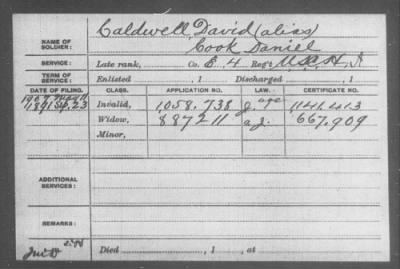 NAME OF SOLDIER: Caldwell, David (alias)
Cook Daniel
SERVICE: Late rank, Co. E. 4 Reg't
TERM OF SERVICE: Enlisted , 1 Discharged , 1
DATE OF FILING. CLASS. APPLICATION NO. LAW. CERTIFICATE NO.
Invalid, 1,058.738 g. age 1,141,413
Widow, 887211 a.g. 667,909
Minor,
ADDITIONAL SERVICES:
REMARKS:
Died , 1 , at